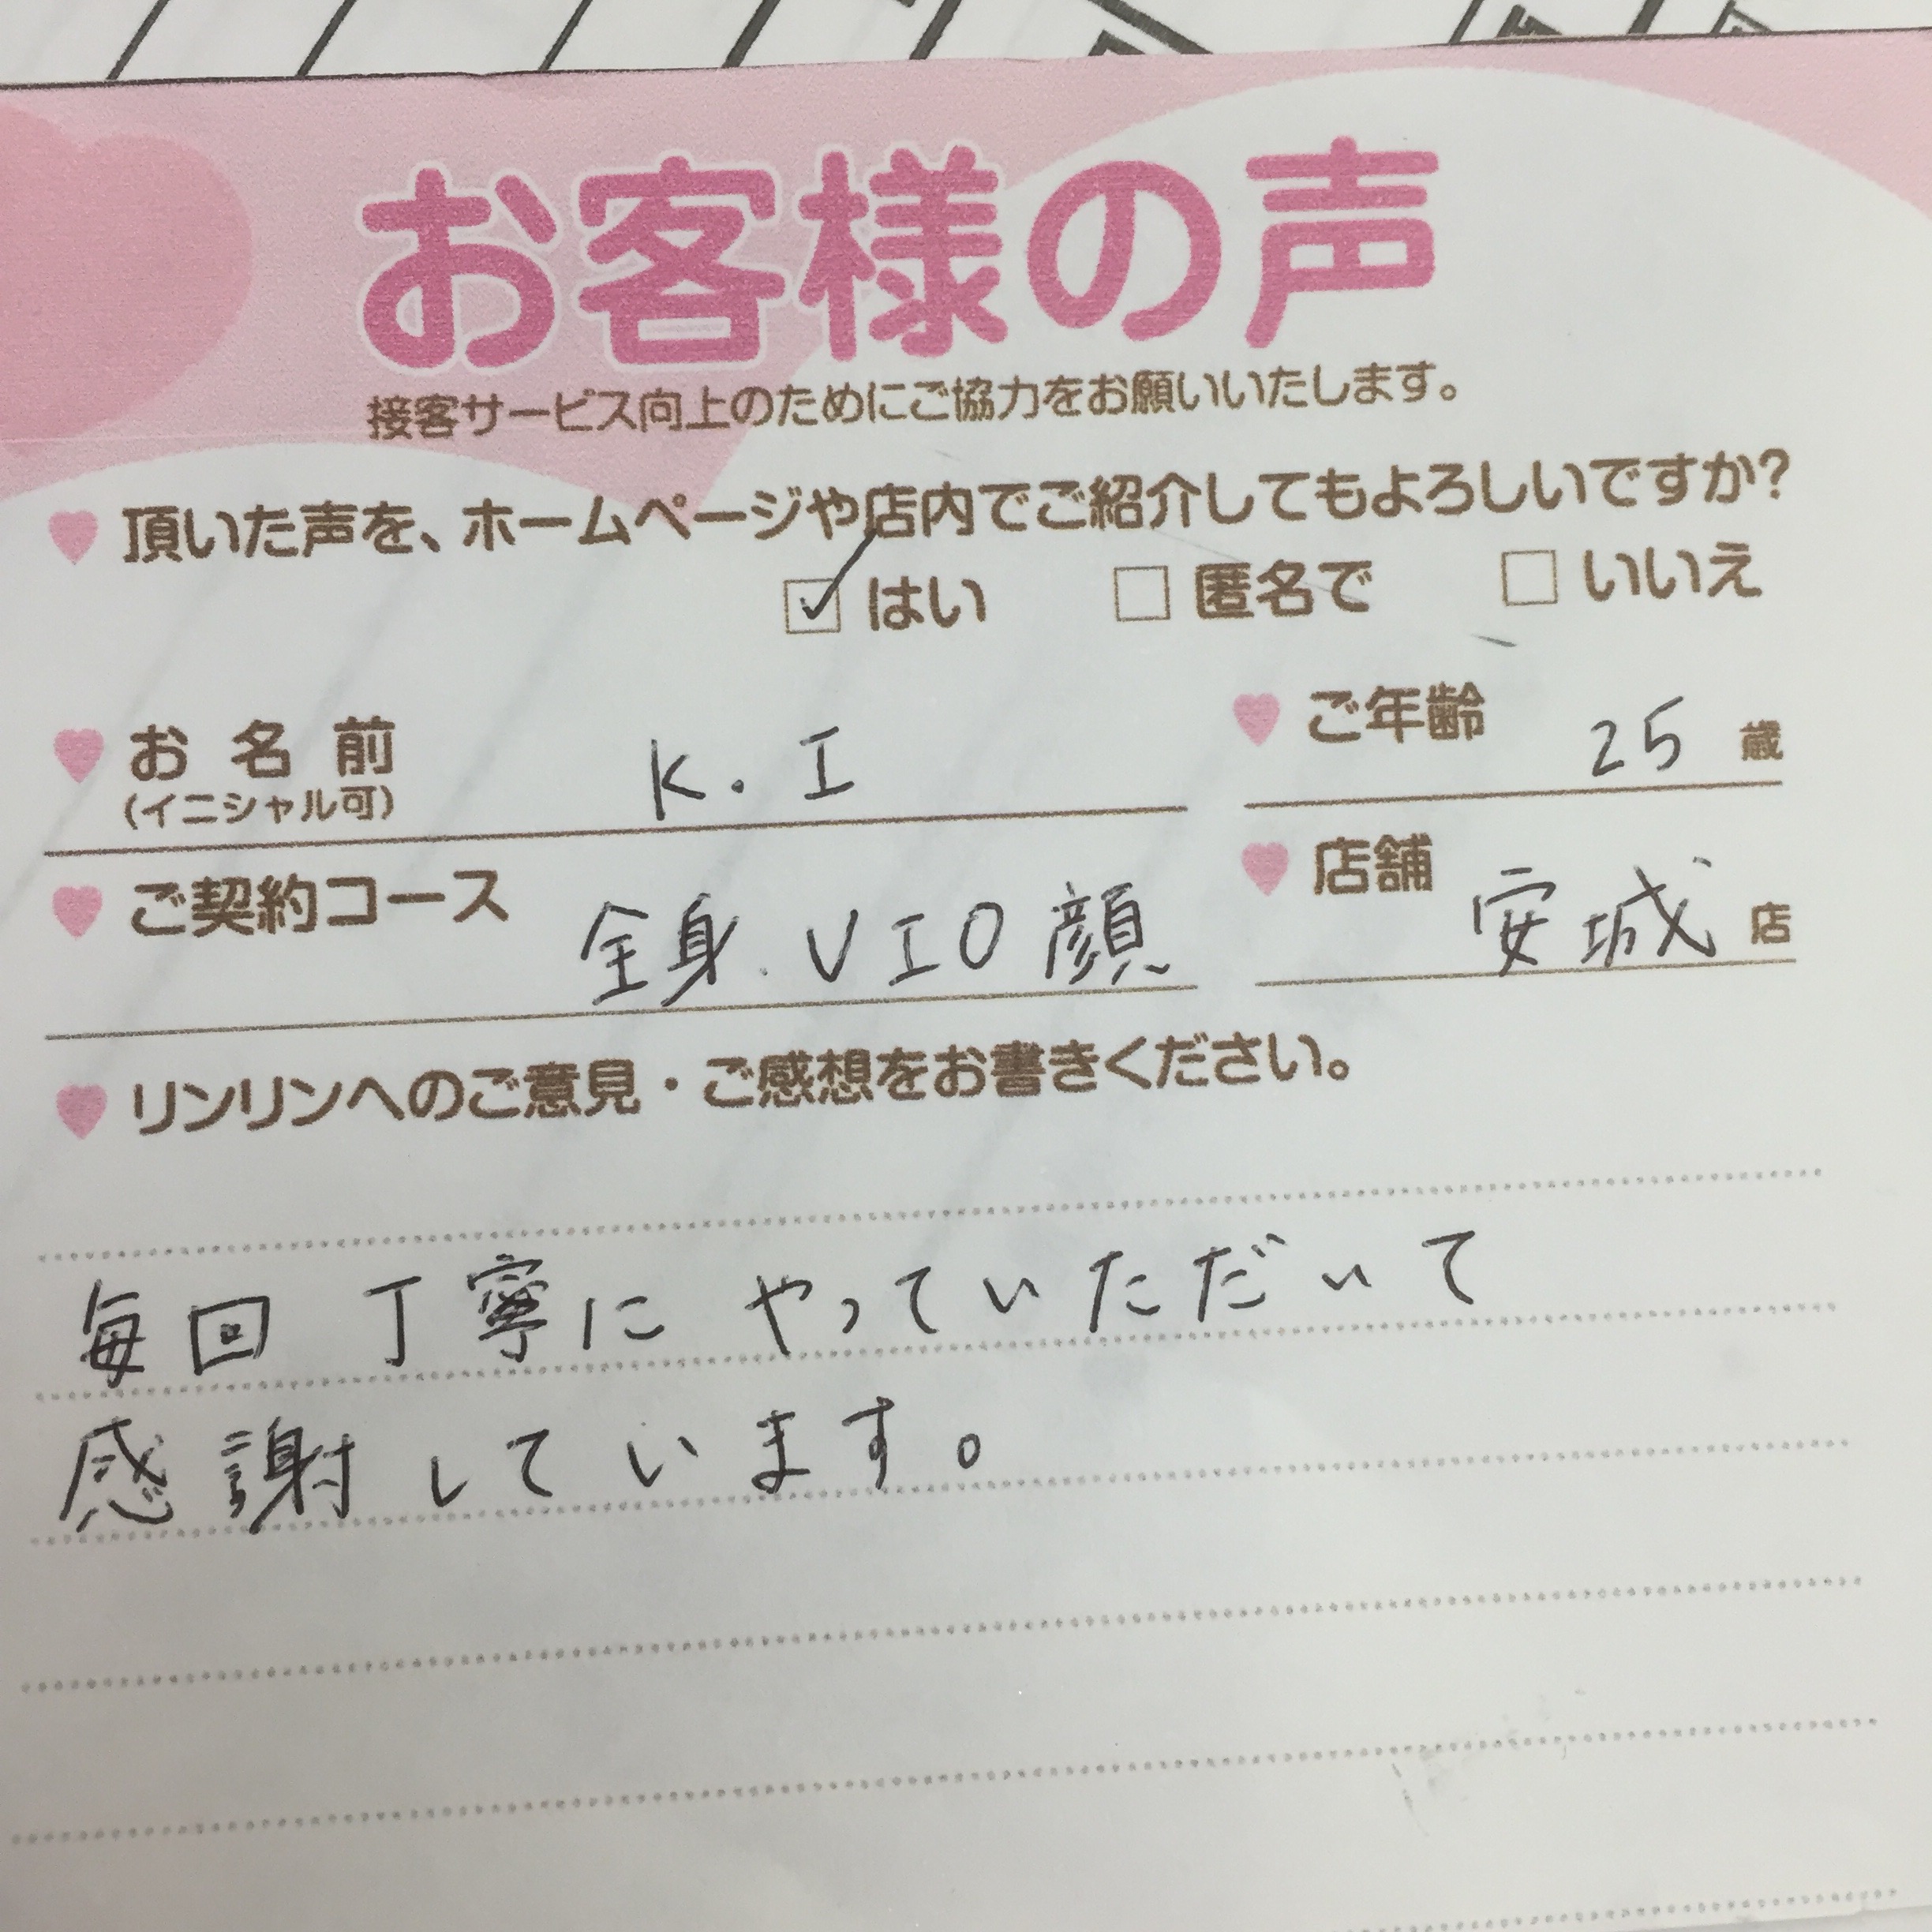 お客様の声
接客サービス向上のためにご協力をお願いいたします。
頂いた声を、ホームページや店内でご紹介してもよろしいですか?
はい 匿名で いいえ
お名前 K.I ご年齢 25 歳
(イニシャル可)
ご契約コース 全身.VIO顔 店舗 安城 店
リンリンへのご意見・ご感想をお書きください。
毎回 丁寧に やっていただいて
感謝しています。